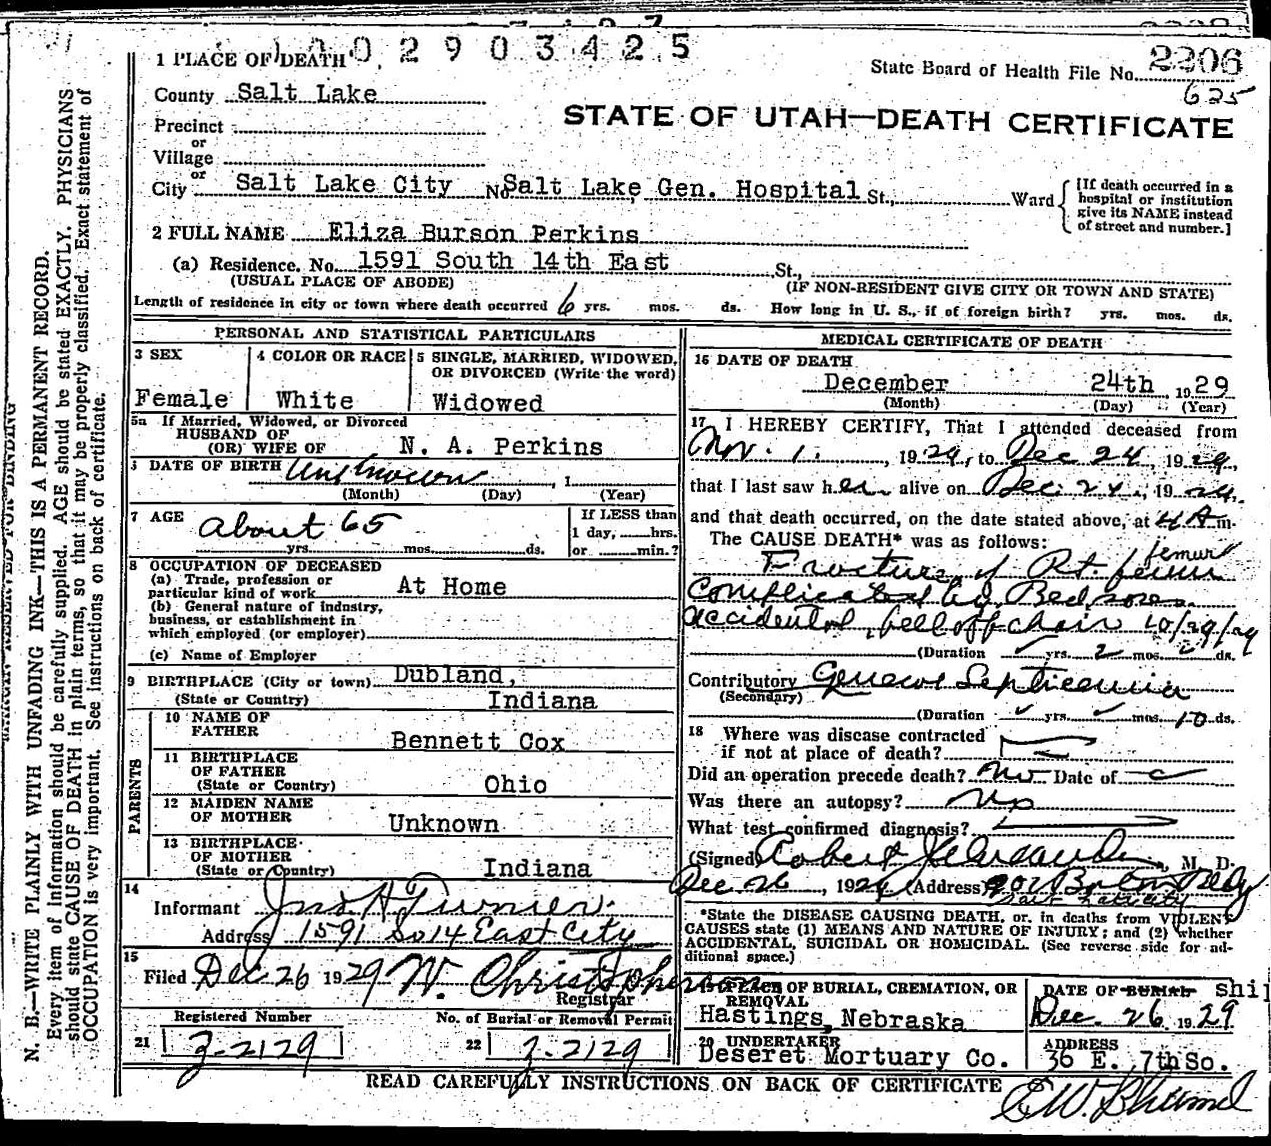 1 0 0 2 9 0 3 4 2 5
1 PLACE OF DEATH
State Board of Health File No. 2206
625
County Salt Lake
STATE OF UTAH—DEATH CERTIFICATE
Precinct
or
Village
or
City Salt Lake City No Salt Lake Gen. Hospital St., Ward
[If death occurred in a hospital or institution give its NAME instead of street and number.]
2 FULL NAME Eliza Burson Perkins
(a) Residence. No. 1591 South 14th East St.,
(USUAL PLACE OF ABODE) (IF NON-RESIDENT GIVE CITY OR TOWN AND STATE)
Length of residence in city or town where death occurred 6 yrs. mos. ds. How long in U. S., if of foreign birth? yrs. mos. ds.
PERSONAL AND STATISTICAL PARTICULARS
3 SEX
Female
4 COLOR OR RACE
White
5 SINGLE, MARRIED, WIDOWED,
OR DIVORCED (Write the word)
Widowed
5a If Married, Widowed, or Divorced
HUSBAND OF
(OR) WIFE OF N. A. Perkins
DATE OF BIRTH Unknown, 1
(Month) (Day) (Year)
7 AGE
about 65
yrs. mos. ds.
If LESS than
1 day, hrs.
or min.?
8 OCCUPATION OF DECEASED
(a) Trade, profession or
particular kind of work At Home
(b) General nature of industry,
business, or establishment in
which employed (or employer)
(c) Name of Employer
9 BIRTHPLACE (City or town) Dubland,
(State or Country) Indiana
PARENTS
10 NAME OF
FATHER
Bennett Cox
11 BIRTHPLACE
OF FATHER
(State or Country) Ohio
12 MAIDEN NAME
OF MOTHER
Unknown
13 BIRTHPLACE
OF MOTHER
(State or Country) Indiana
14
Informant Jno H Turner
Address 1591 So 14 East City
15
Filed Dec 26 1929 W. Christopherson
Registrar
Registered Number
21 Z-2129
No. of Burial or Removal Permit
22 Z-2129
MEDICAL CERTIFICATE OF DEATH
16 DATE OF DEATH
December 24th, 1929
(Month) (Day) (Year)
17 I HEREBY CERTIFY, That I attended deceased from
Nov. 1., 1929, to Dec 24, 1929,
that I last saw her alive on Dec. 24, 1929,
and that death occurred, on the date stated above, at 4 A m.
The CAUSE DEATH* was as follows:
femur
Fracture of Rt. femur
Complicated by Bedsores.
accidental, fell off chair 10/29/29
(Duration yrs. 2 mos. ds.
Contributory General Septicemia
(Secondary)
(Duration yrs. mos. 10 ds.
18 Where was disease contracted
if not at place of death?
Did an operation precede death? No Date of
Was there an autopsy? No
What test confirmed diagnosis?
(Signed) Robert, M. D.
Dec 26, 1929 (Address)
*State the DISEASE CAUSING DEATH, or, in deaths from VIOLENT
CAUSES state (1) MEANS AND NATURE OF INJURY; and (2) whether
ACCIDENTAL, SUICIDAL OR HOMICIDAL. (See reverse side for ad-
ditional space.)
PLACE OF BURIAL, CREMATION, OR
REMOVAL
Hastings, Nebraska
DATE OF BURIAL Shi
Dec. 26 1929
20 UNDERTAKER
Deseret Mortuary Co.
ADDRESS
36 E. 7th So.
READ CAREFULLY INSTRUCTIONS ON BACK OF CERTIFICATE
MARGIN RESERVED FOR BINDING
N. B.—WRITE PLAINLY WITH UNFADING INK—THIS IS A PERMANENT RECORD.
Every item of information should be carefully supplied. AGE should be stated EXACTLY. PHYSICIANS
should state CAUSE OF DEATH in plain terms, so that it may be properly classified. Exact statement of
OCCUPATION is very important. See instructions on back of certificate.